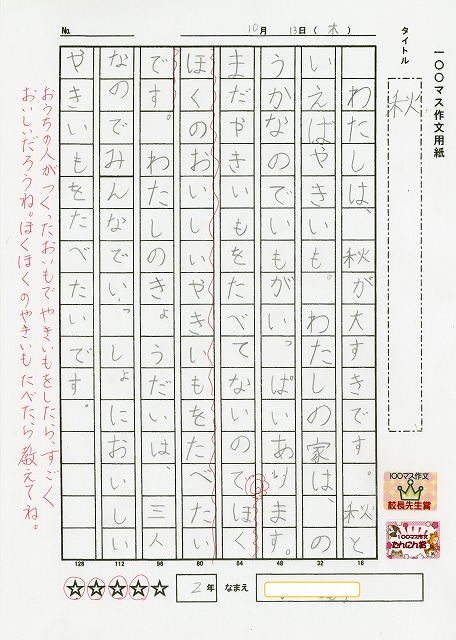 一〇〇マス作文用紙
タイトル
秋
No.
10月 13日(木)
わたしは、秋が大すきです。秋と
いえばやきいも。わたしの家は、の
うかなのでいもがいっぱいあります。
まだやきいもをたべてないのてほく
ほくのおいしいやきいもをたべたい
です。わたしのきょうだいは、三人
なのでみんなでいっしょにおいしい
やきいもをたべたいです。
おうちの人が つくったおいもで やきいもをしたら、すごく
おいしいだろうね。ほくほくのやきいも たべたら 教えてね。
100マス作文
校長先生賞
100マス作文
たんにん賞
128 112 96 80 64 48 32 16
☆☆☆☆☆ 2年 なまえ